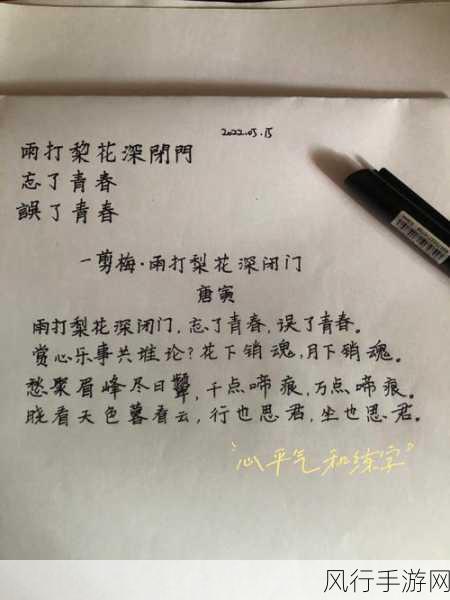 2022.05.15
雨打黎花深閉門
忘了青春
誤了青春
一剪梅·雨打梨花深闭门
唐寅
雨打梨花深闭门,忘了青春,误了青春。
赏心乐事共谁论?花下销魂,月下销魂。
愁聚眉峰尽日颦,千点啼痕,万点啼痕。
晓看天色暮看云,行也思君,坐也思君。
“心平气和练字”
风行手游网